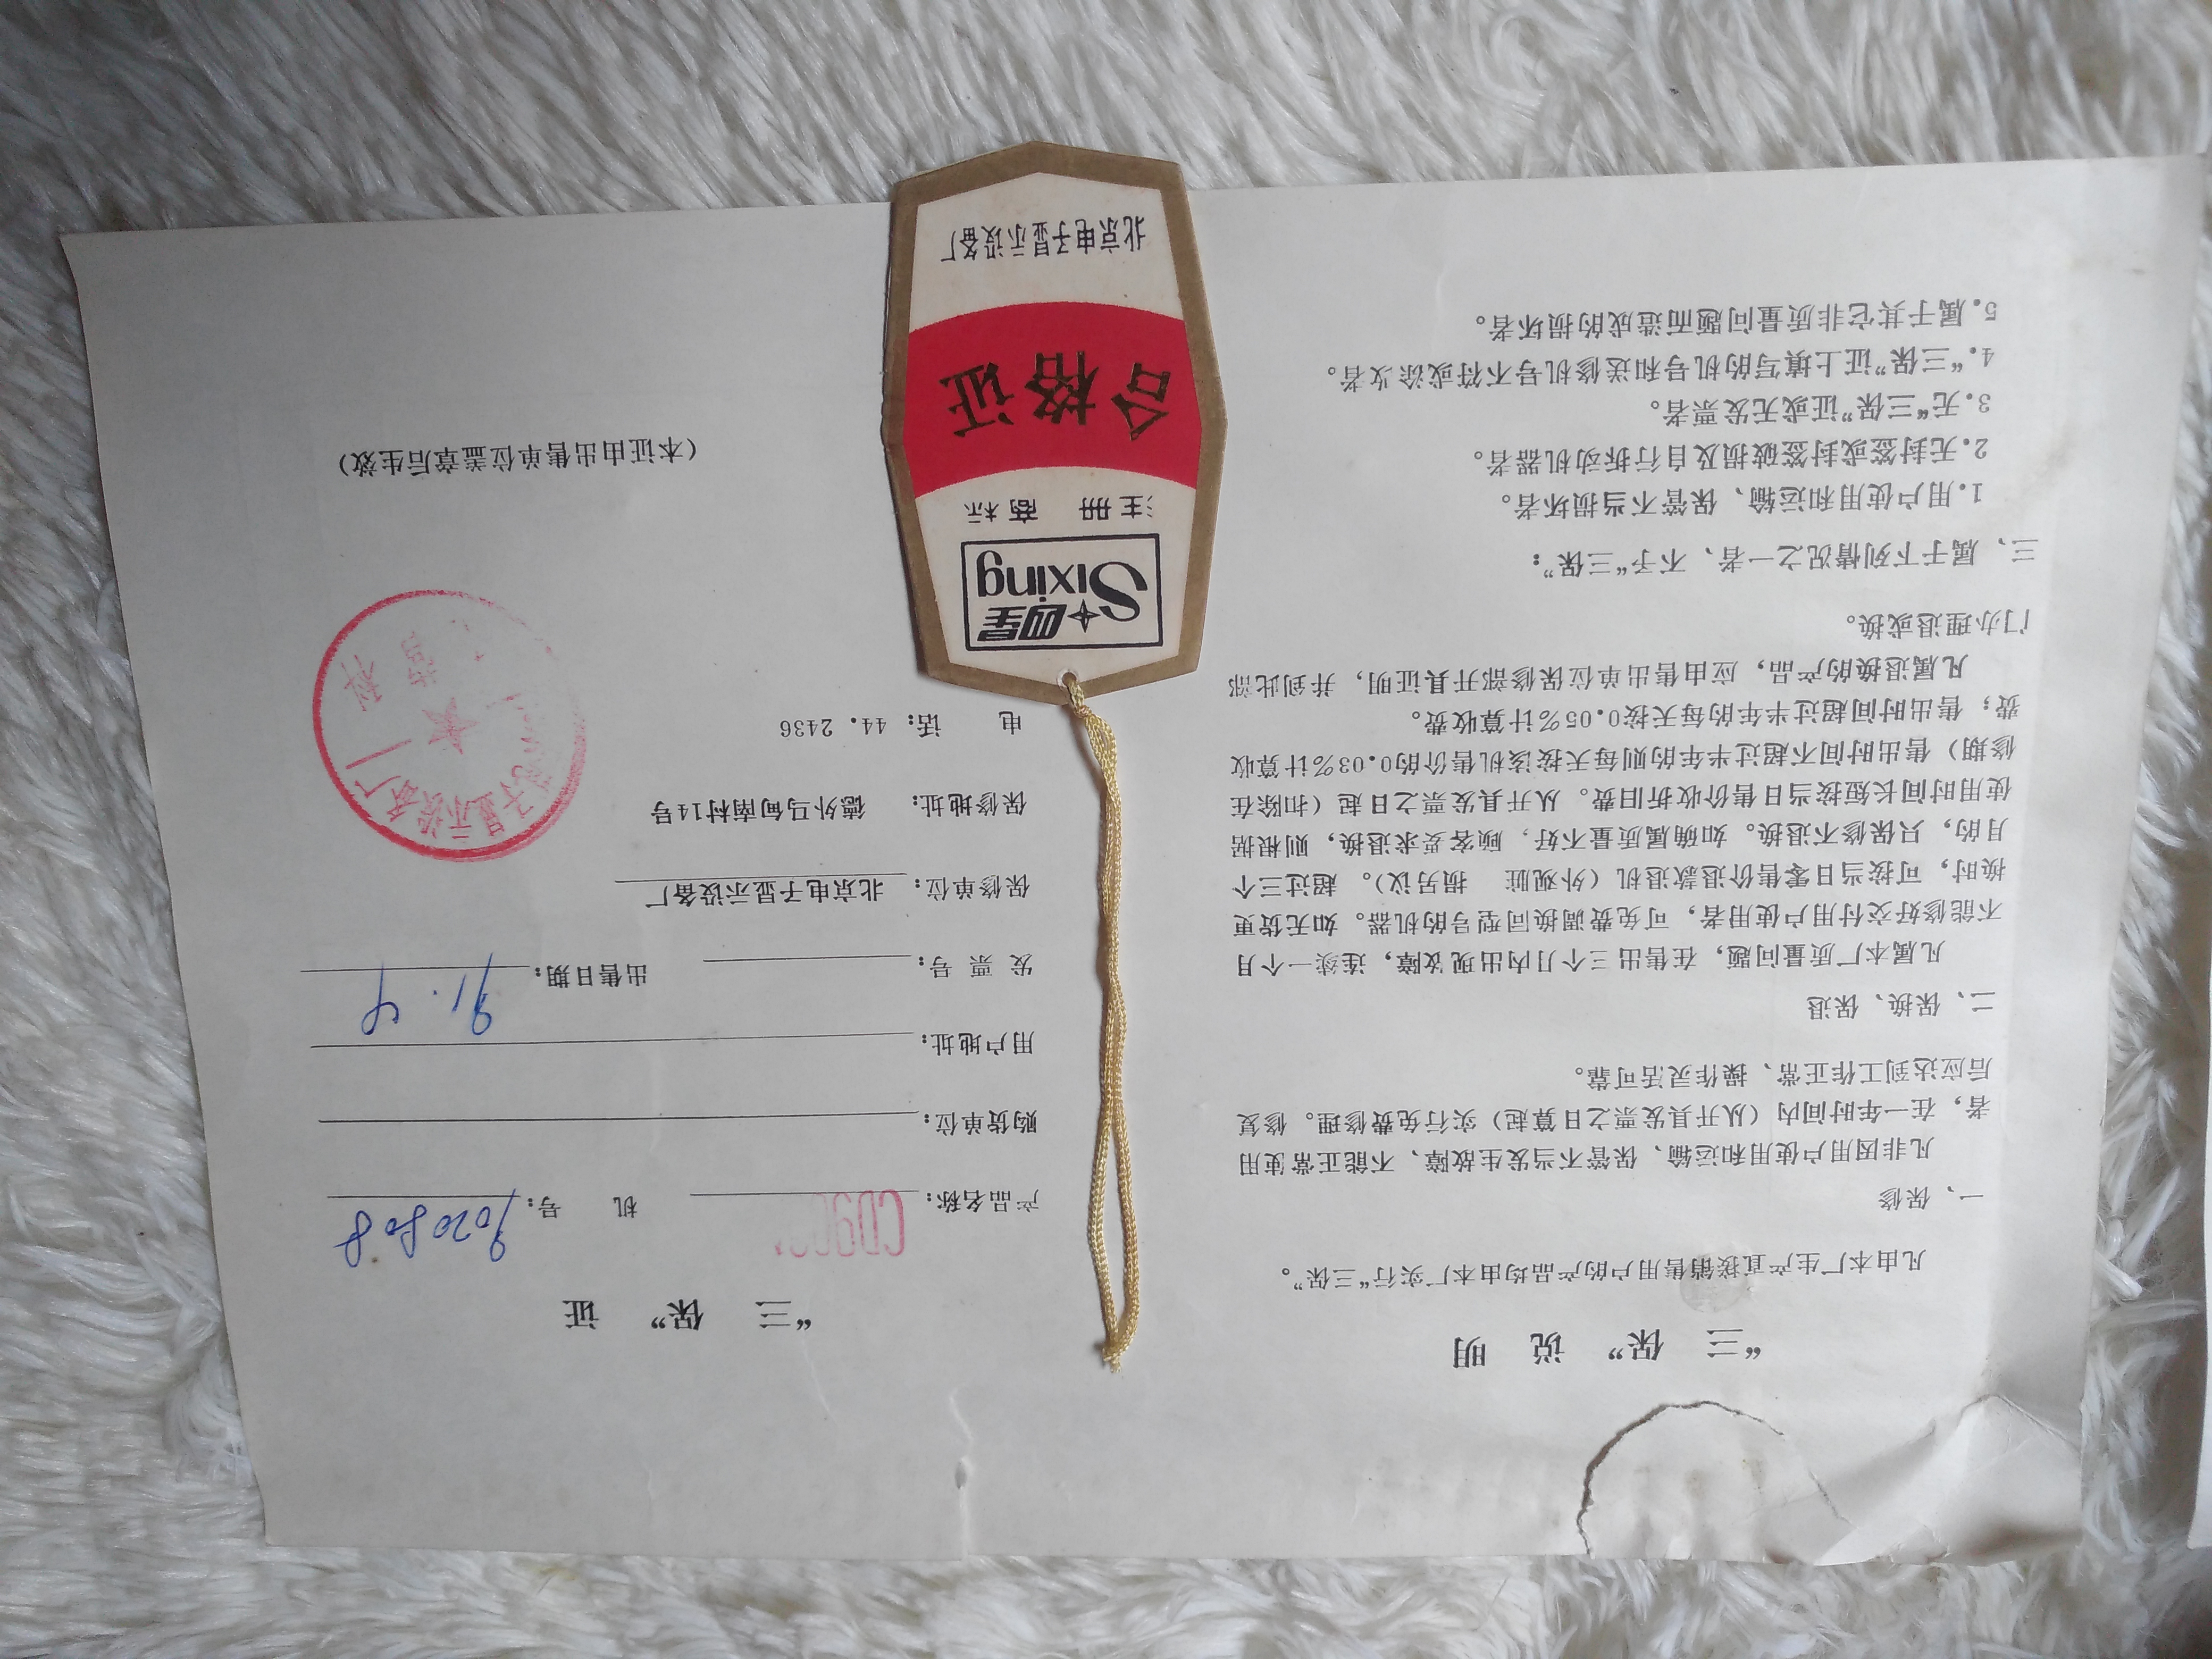 “三 保” 说 明
凡由本厂生产直接销售用户的产品均由本厂实行“三保”。
一、保修
凡非因用户使用和运输、保管不当发生故障、不能正常使用
者，在一年时间内（从开具发票之日算起）实行免费修理。修复
后应达到工作正常、操作灵活可靠。
二、保换、保退
凡属本厂质量问题，在售出三个月内出现故障，连续一个月
不能修好交付用户使用者，可免费调换同型号的机器。如无货更
换时，可按当日零售价退款退机（外观脏 损另议）。超过三个
月的，只保修不退换。如确属质量不好，顾客要求退换，则根据
使用时间长短按当日售价收折旧费。从开具发票之日起（扣除在
修期）售出时间不超过半年的则每天按该机售价的0.03%计算收
费；售出时间超过半年的每天按0.05%计算收费。
凡属退换的产品，应由售出单位保修部开具证明，并到此部
门办理退或换。
三、属于下列情况之一者、不予“三保”：
1.用户使用和运输、保管不当损坏者。
2.无封签或封签破损及自行拆动机器者。
3.无“三保”证或无发票者。
4.“三保”证上填写的机号和送修机号不符或涂改者。
5.属于其它非质量问题而造成的损坏者。
四星
Sixing
注册 商标
合格证
北京电子显示设备厂
“三 保” 证
产品名称：
机 号：9020808
购货单位：
用户地址：
发 票 号：
出售日期：91.4
保修单位：北京电子显示设备厂
保修地址：德外马甸南村14号
电 话：44.2436
子显示设备厂
科
（本证由出售单位盖章后生效）